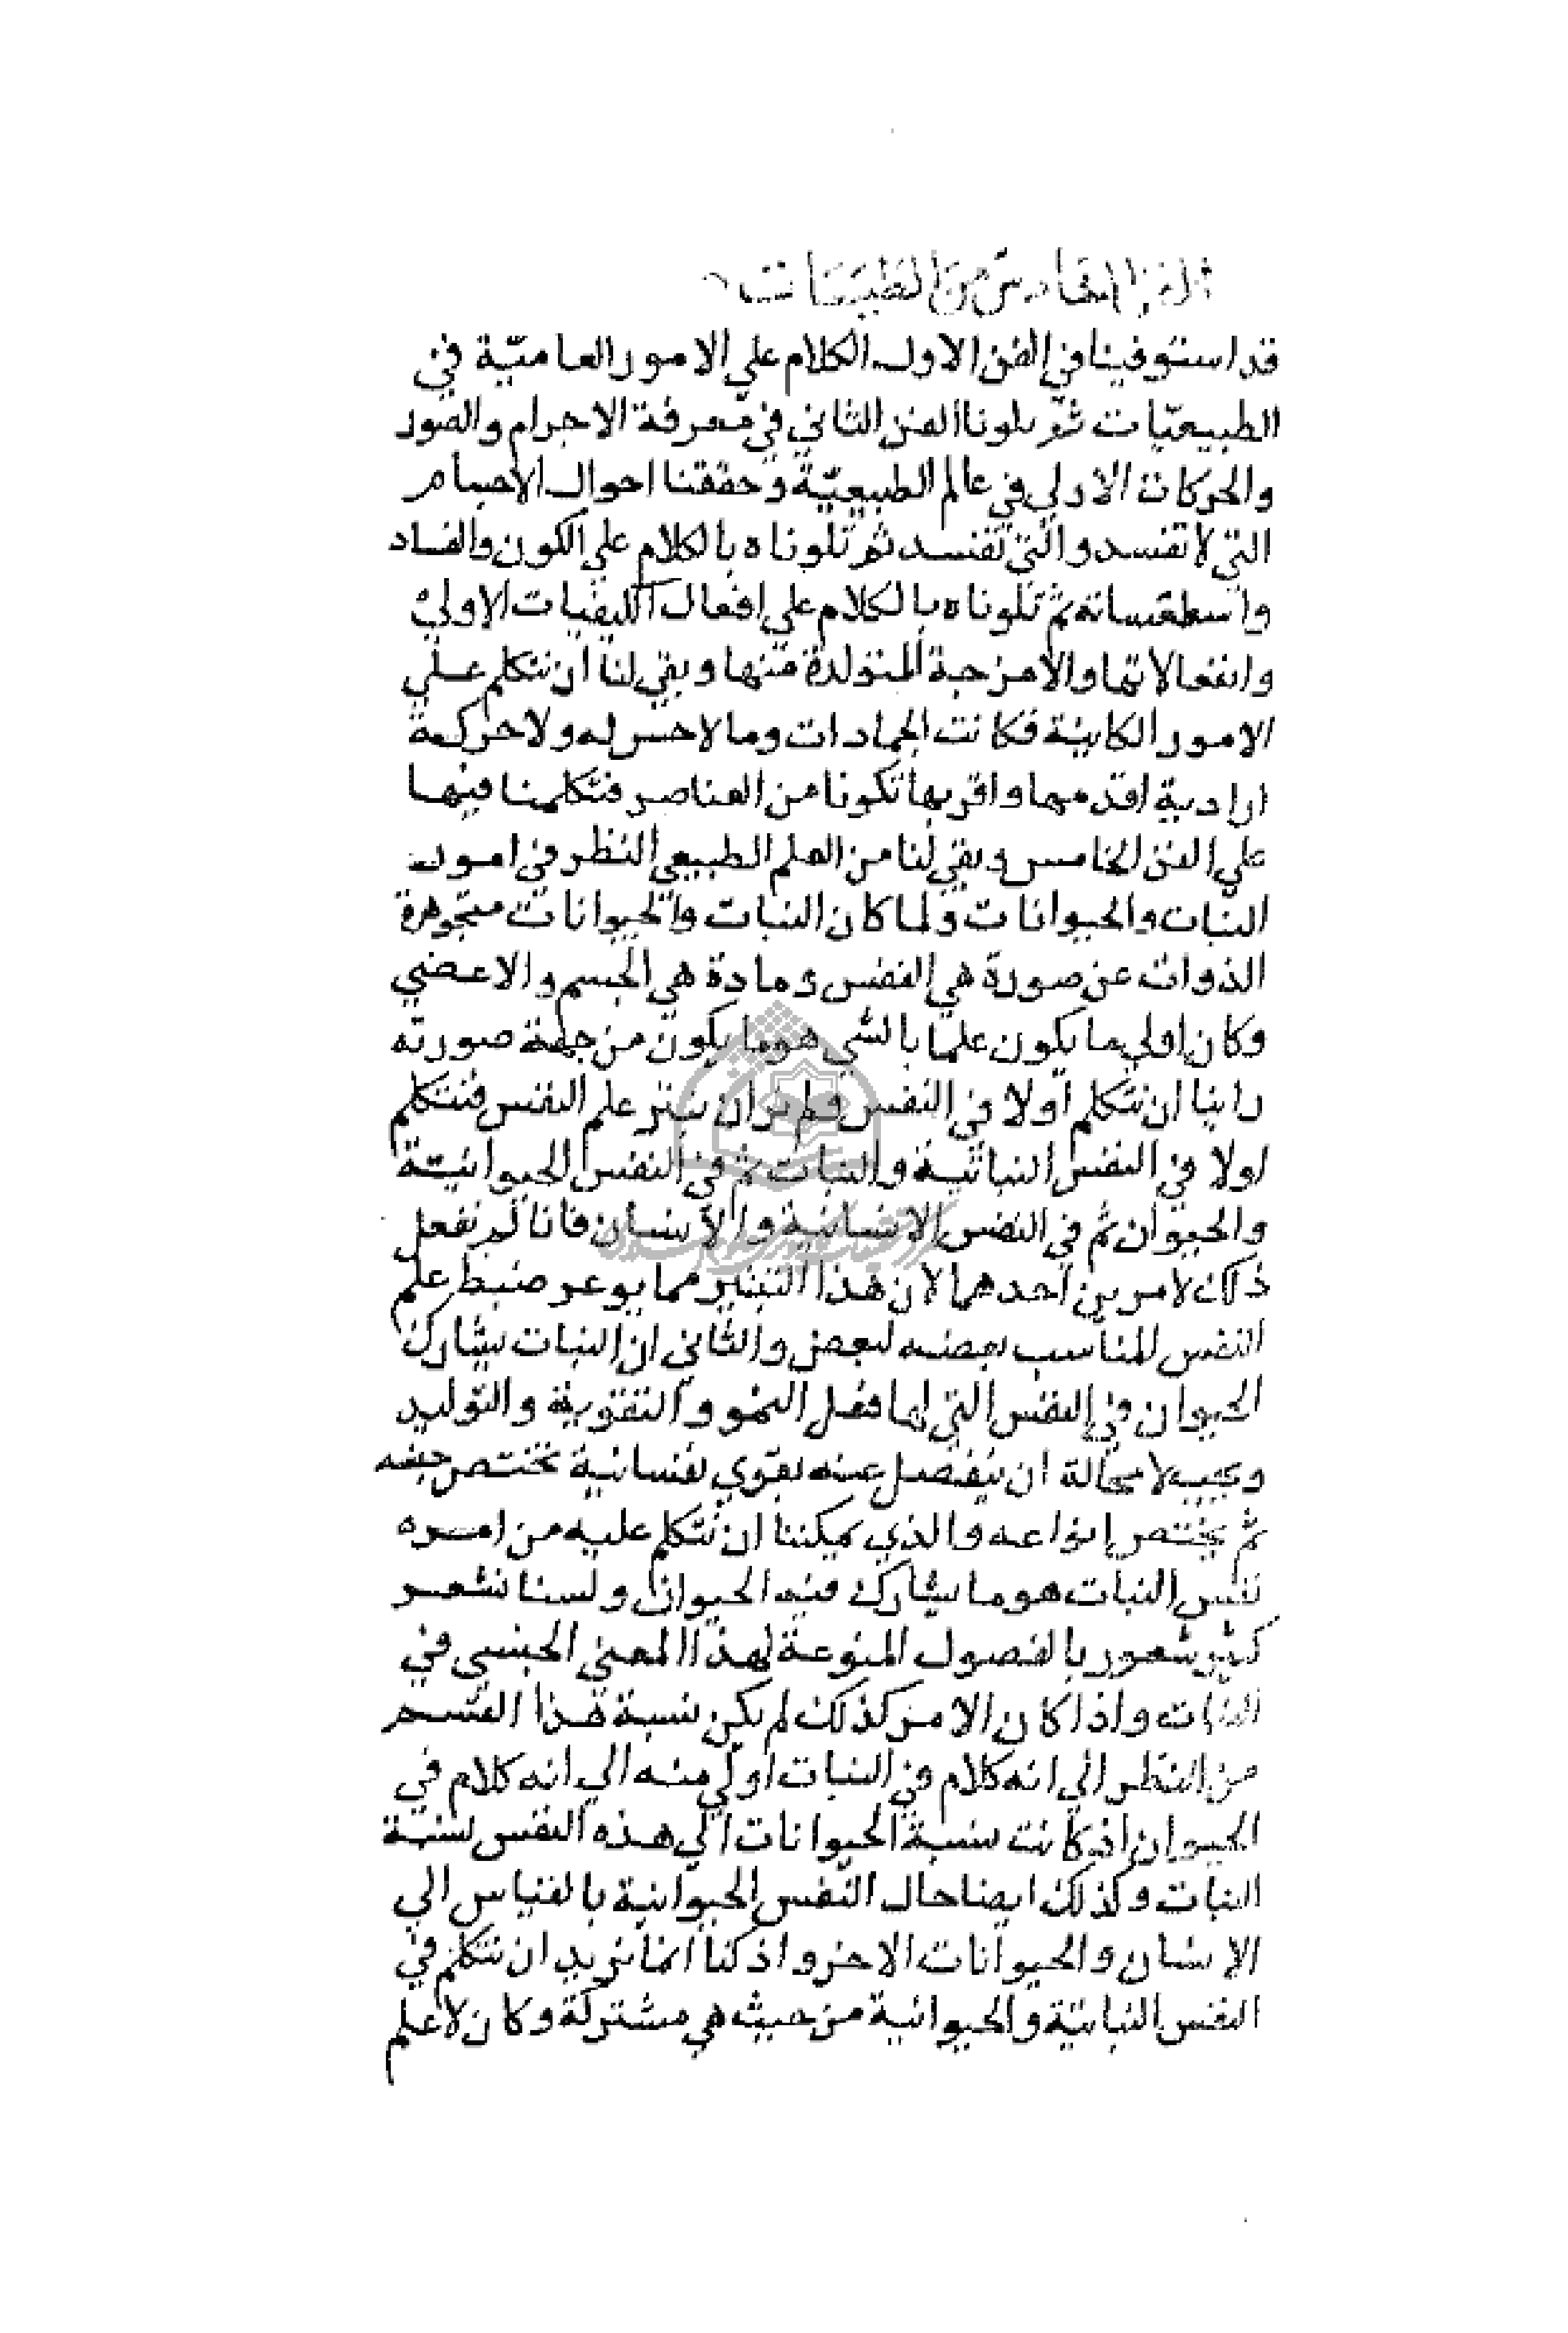 الفن السادس من الطبيعيات
قد استوفينا في الفن الاول الكلام علي الامور العامية في
الطبيعيات ثم تلونا الفن الثاني في معرفة الاجرام والصور
والحركات الاولي في عالم الطبيعية وحققنا احوال الاجسام
التي لا تفسد والتي تفسد ثم تلوناه بالكلام علي الكون والفساد
واسطقساته ثم تلوناه بالكلام علي افعال الكيفيات الاولي
وانفعالاتها والامزجة المتولدة منها وبقي لنا ان نتكلم علي
الامور الكاينة فكانت الجمادات وما لا حس له ولا حركة
ارادية اقدمها واقربها تكونا من العناصر فتكلمنا فيها
علي الفن الخامس وبقي لنا من العلم الطبيعي النظر في امور
النبات والحيوانات ولما كان النبات والحيوانات متجوهرة
الذوات عن صورة هي النفس ومادة هي الجسم والاعضي
وكان اولي ما يكون علما بالشي هو ما يكون من جهة صورته
راينا ان نتكلم اولا في النفس ولم نر ان نبتر علم النفس فنتكلم
اولا في النفس النباتية والنبات ثم في النفس الحيوانية
والحيوان ثم في النفس الانسانية والانسان فانا لم نفعل
ذلك لامرين احدهما لان هذا التبتير مما يوعر ضبط علم
النفس المناسب بعضه لبعض والثاني ان النبات يشارك
الحيوان في النفس التي لها فعل النمو والتقوية والتوليد
ويجب لا محالة ان ينفصل عنه بقوي نفسانية تختص جنسه
ثم يختص انواعه والذي يمكننا ان نتكلم عليه من امره
نفس النبات هو ما يشارك فيه الحيوان ولسنا نشعر
كثير شعور بالفصول المنوعة لهذا المعني الجنسي في
النبات واذا كان الامر كذلك لم يكن نسبة هذا القسم
من النظر الي انه كلام في النبات اولي منه الي انه كلام في
الحيوان اذ كانت نسبة الحيوانات الي هذه النفس نسبة
النبات وكذلك ايضا حال النفس الحيوانية بالقياس الي
الانسان والحيوانات الاخر واذ كنا انما نريد ان نتكلم في
النفس النباتية والحيوانية من حيث هي مشتركة وكان لا علم